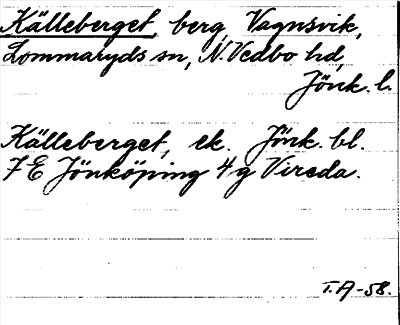 Källeberget, berg, Vagnsvik,
Lommaryds sn, N. Vedbo hd,
Jönk. l.
Källeberget, ek. Jönk. bl.
7 E Jönköping 4 g Vireda.
T.A-58.